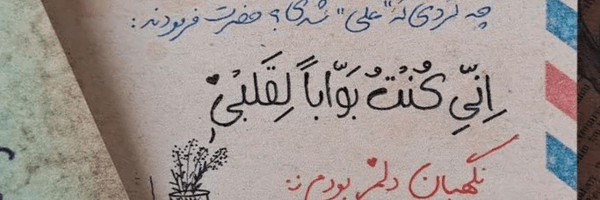 چه کردی که "علی" شدی؟ حضرت فرمودند:
اِنّي كُنْتُ بَوّاباً لِقَلبْي
نگهبان دلم بودم :)